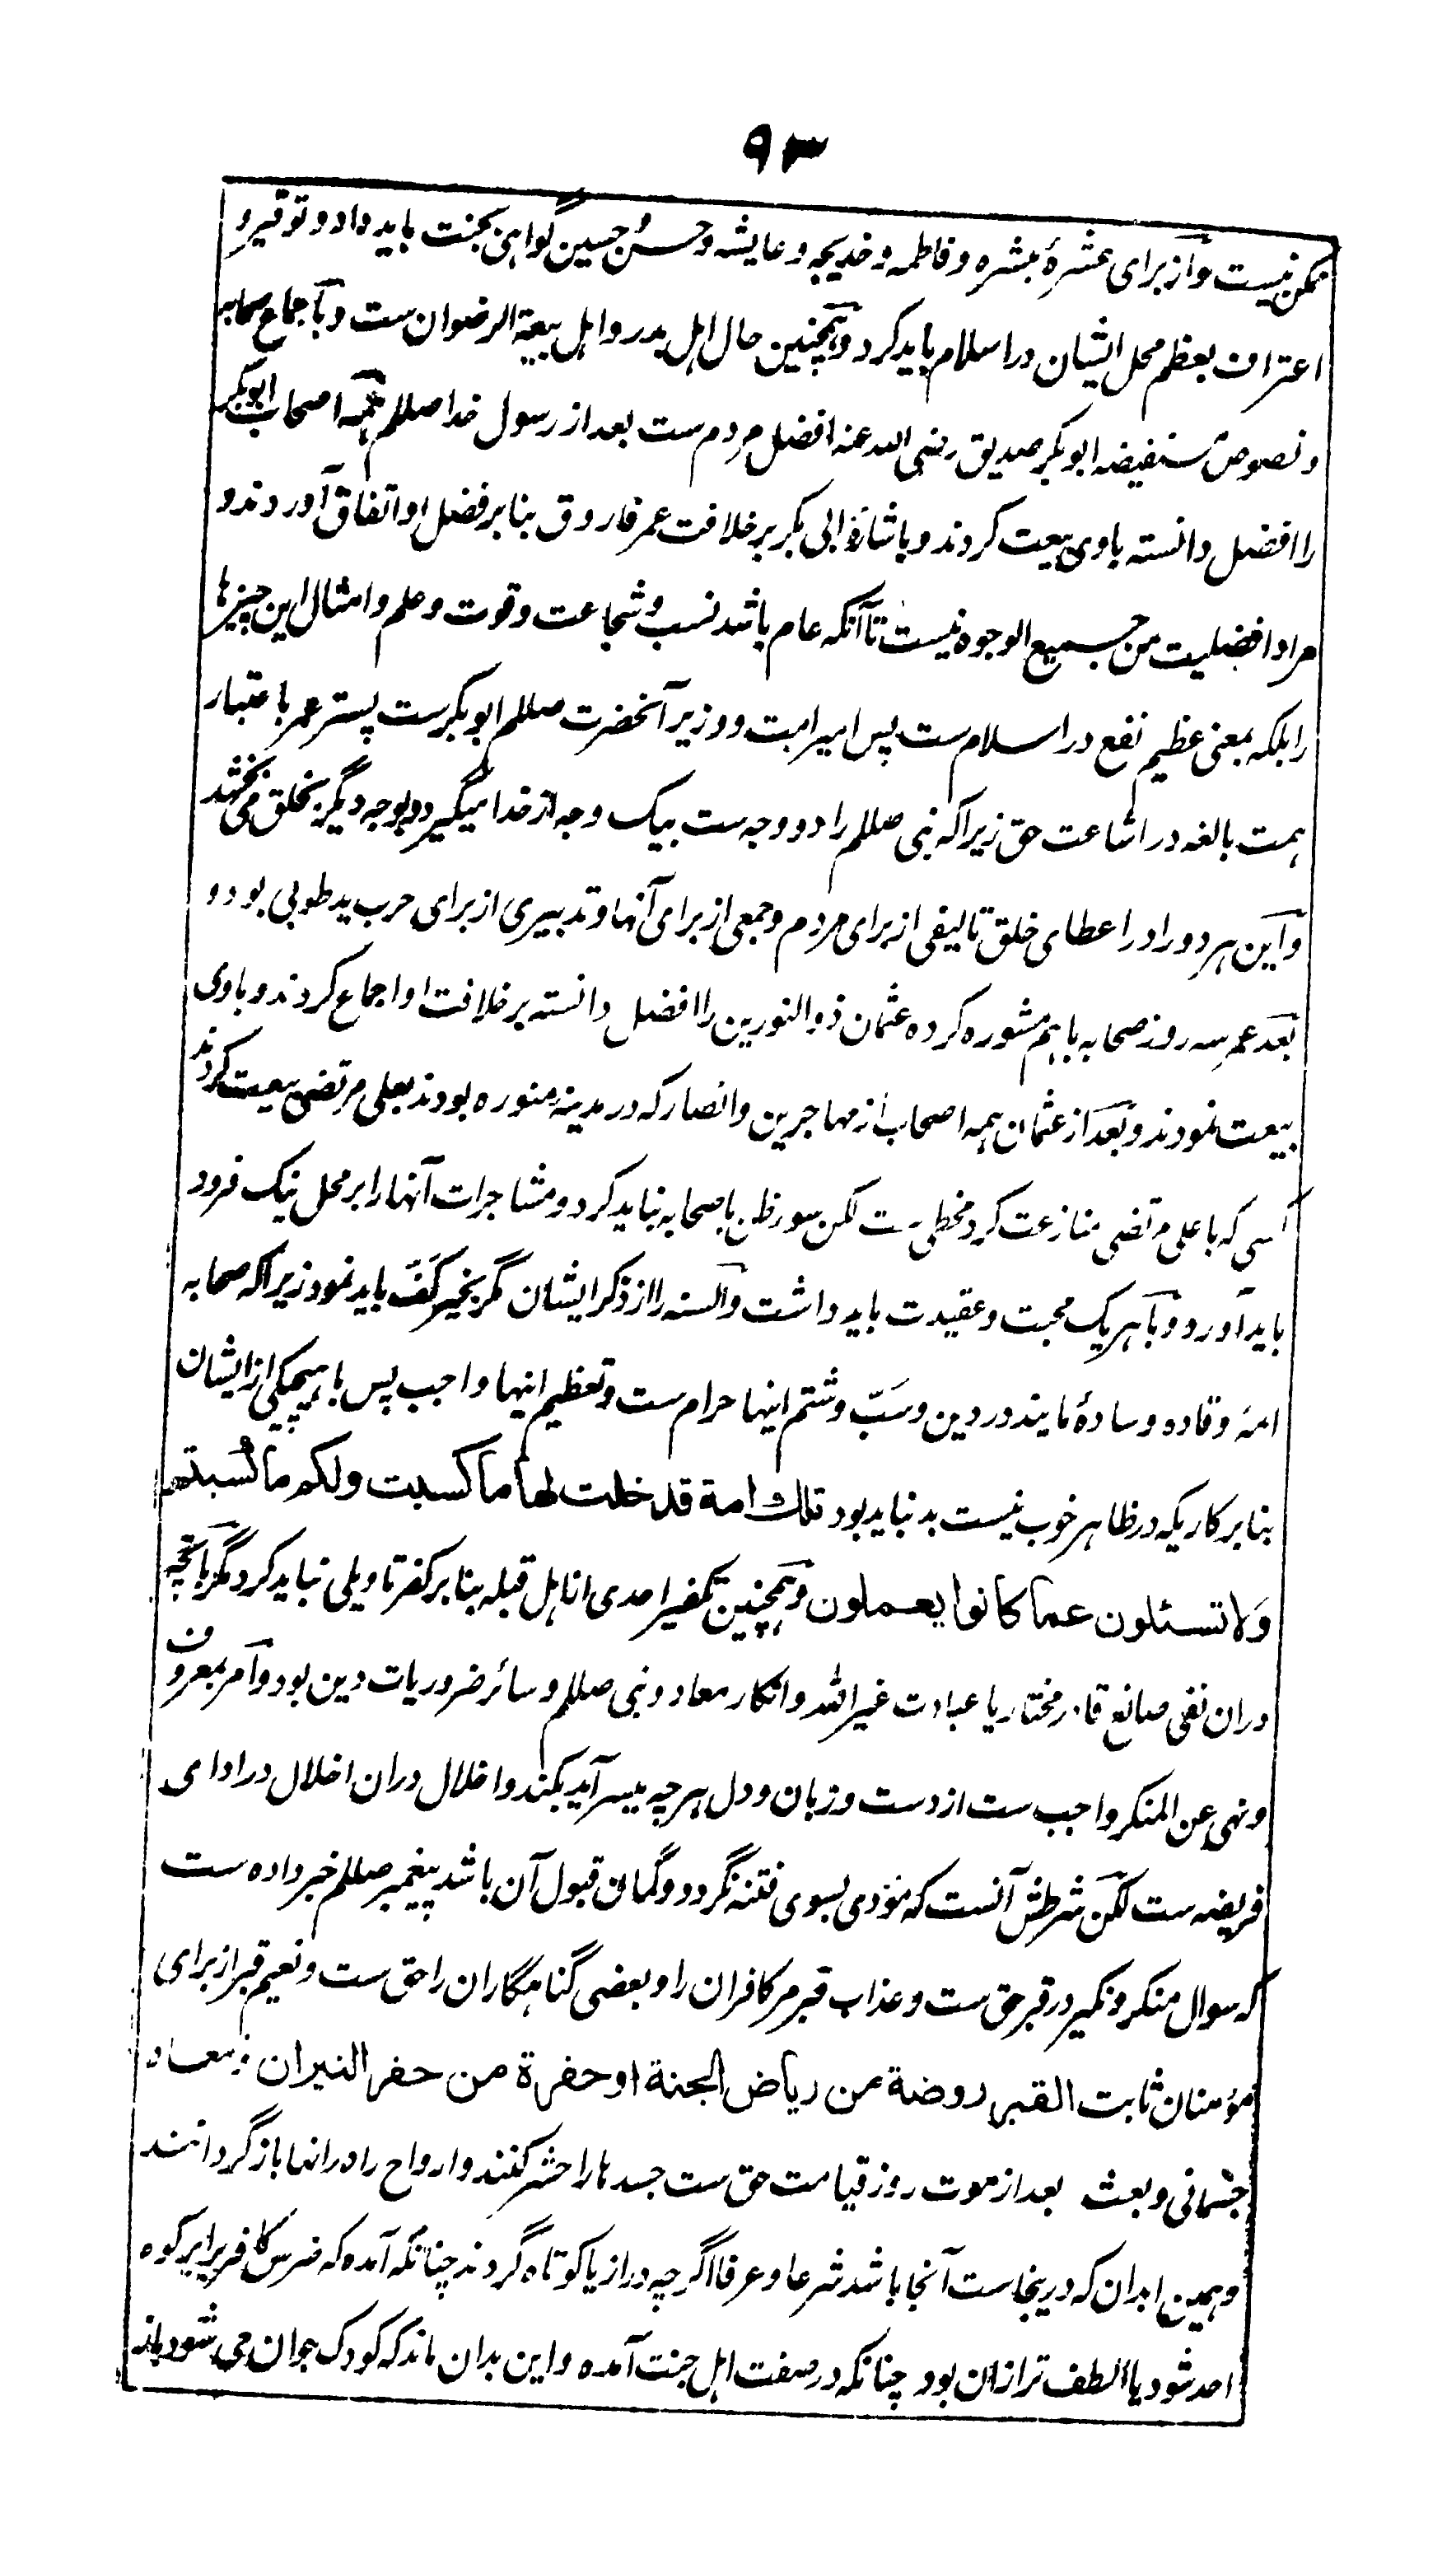 ۹۳
ممکن نیست و از برای عشرهٔ مبشره و فاطمه و خدیجه و عایشه و حسن و حسین گواهی بجنت باید داد و توقیر و
اعتراف بعظم محل ایشان در اسلام باید کرد و همچنین حال اهل بدر و اهل بیعة الرضوان ست و باجماع صحابه
و نصوص مستفیضه ابو بکر صدیق رضی الله عنه افضل مردم ست بعد از رسول خدا صللم همه اصحاب ابوبکر
را افضل دانسته با وی بیعت کردند و باشارۀ ابی بکر بر خلافت عمر فاروق بنا بر فضل او اتفاق آوردند و
مراد افضلیت من جمیع الوجوه نیست تا آنکه عام باشد نسب و شجاعت و قوت و علم و امثال این چیزها
را بلکه بمعنی عظیم نفع در اسلام ست پس امیر امت و وزیر آنحضرت صللم ابو بکرست پستر عمر باعتبار
همت بالغه در اشاعت حق زیرا که نبی صللم را دو وجه ست بیک وجه از خدا میگیرد و بوجه دیگر بخلق می بخشد
و این هر دو را در اعطای خلق تالیفی از برای مردم و جمعی از برای آنها و تدبیری از برای حرب ید طولی بود و
بعد عمر سه روز صحابه با هم مشوره کرده عثمان ذوالنورین را افضل دانسته بر خلافت او اجماع کردند و با وی
بیعت نمودند و بعد از عثمان همه اصحاب از مهاجرین و انصار که در مدینۀ منوره بودند بعلی مرتضی بیعت کردند
کسی که با علی مرتضی منازعت کرد مخطی ست لکن سوء ظن با صحابه نباید کرد و مشاجرات آنها را بر محل نیک فرود
باید آورد و با هر یک محبت و عقیدت باید داشت و السنه را از ذکر ایشان مگر بخیر کفّ باید نمود زیرا که صحابه
ائمه و قاده و سادهٔ مایند در دین و سبّ و شتم اینها حرام ست و تعظیم اینها واجب پس با هیچیکی از ایشان
بنا بر کاریکه در ظاهر خوب نیست بد نباید بود تلك امة قد خلت لها ما كسبت ولكم ما كسبتم
ولا تسئلون عما كانوا يعملون و همچنین تکفیر احدی از اهل قبله بنا بر کفر تاویلی نباید کرد مگر بآنچه
دران نفی صانع قادر مختار یا عبادت غیر الله و انکار معاد و نبی صللم و سائر ضروریات دین بود و امر بمعروف
و نهی عن المنکر واجب ست از دست و زبان و دل هر چه میسر آید بکند و اخلال دران اخلال در ادای
فریضه ست لکن شرطش آنست که مؤدی بسوی فتنه نگردد و گمان قبول آن باشد پیغمبر صللم خبر داده ست
که سوال منکر و نکیر در قبر حق ست و عذاب قبر مر کافران را و بعضی گناهگاران را حق ست و نعیم قبر از برای
مؤمنان ثابت القبر روضة من رياض الجنة او حفرة من حفر النيران و معاد
جسمانی و بعث بعد از موت روز قیامت حق ست جسدها را حشر کنند و ارواح را درانها باز گردانند
و همین ابدان که درینجاست آنجا باشد شرعا و عرفا اگرچه دراز یا کوتاه گردند چنانکه آمده که ضرس کافر برابر کوه
احد شود یا الطف تر ازان بود چنانکه در صفت اهل جنت آمده و این بدان ماند که کودک جوان می شود